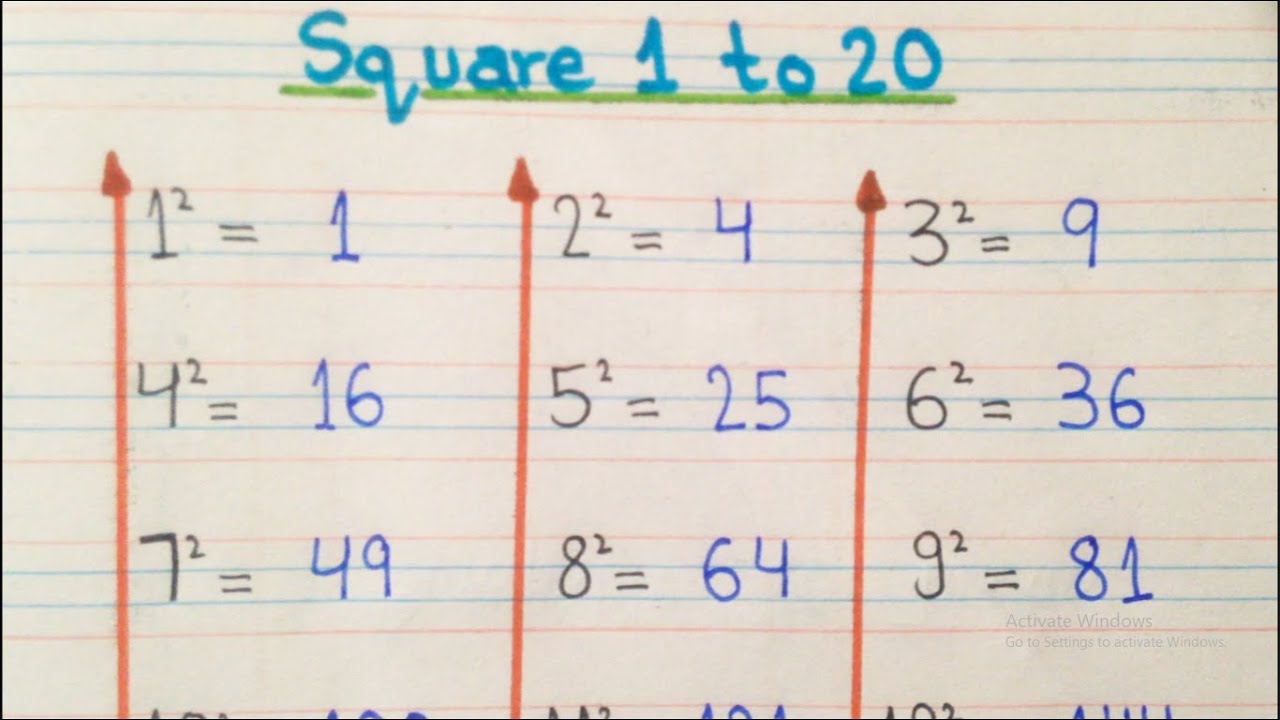 Square 1 to 20
1² = 1 2² = 4 3² = 9
4² = 16 5² = 25 6² = 36
7² = 49 8² = 64 9² = 81
Activate Windows
Go to Settings to activate Windows.